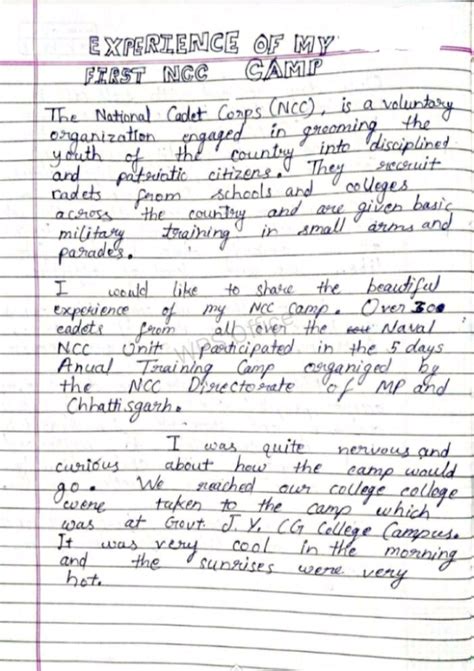 EXPERIENCE OF MY
FIRST NCC CAMP
The National Cadet Corps (NCC), is a voluntary
organization engaged in grooming the
youth of the country into disciplined
and patriotic citizens. They recruit
cadets from schools and colleges
across the country and are given basic
military training in small arms and
parades.
I would like to share the beautiful
experience of my NCC Camp. Over 300
cadets from all over the Naval
NCC Unit participated in the 5 days
Anual Training Camp organized by
the NCC Directorate of MP and
Chhattisgarh.
I was quite nervous and
curious about how the camp would
go. We reached our college college
were taken to the camp which
was at Govt. J.Y. CG College Campus.
It was very cool in the morning
and the sunrises were very
hot.
WPS Office